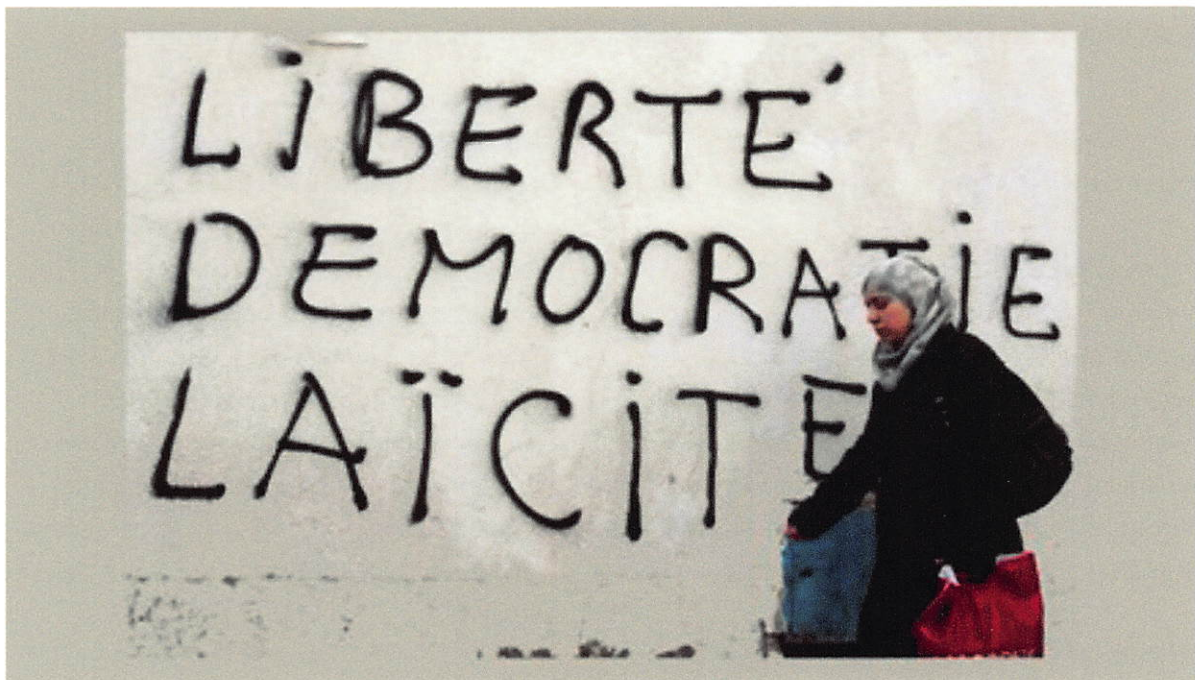 LiBERTÉ
DEMOCRATiE
LAÏCiTE